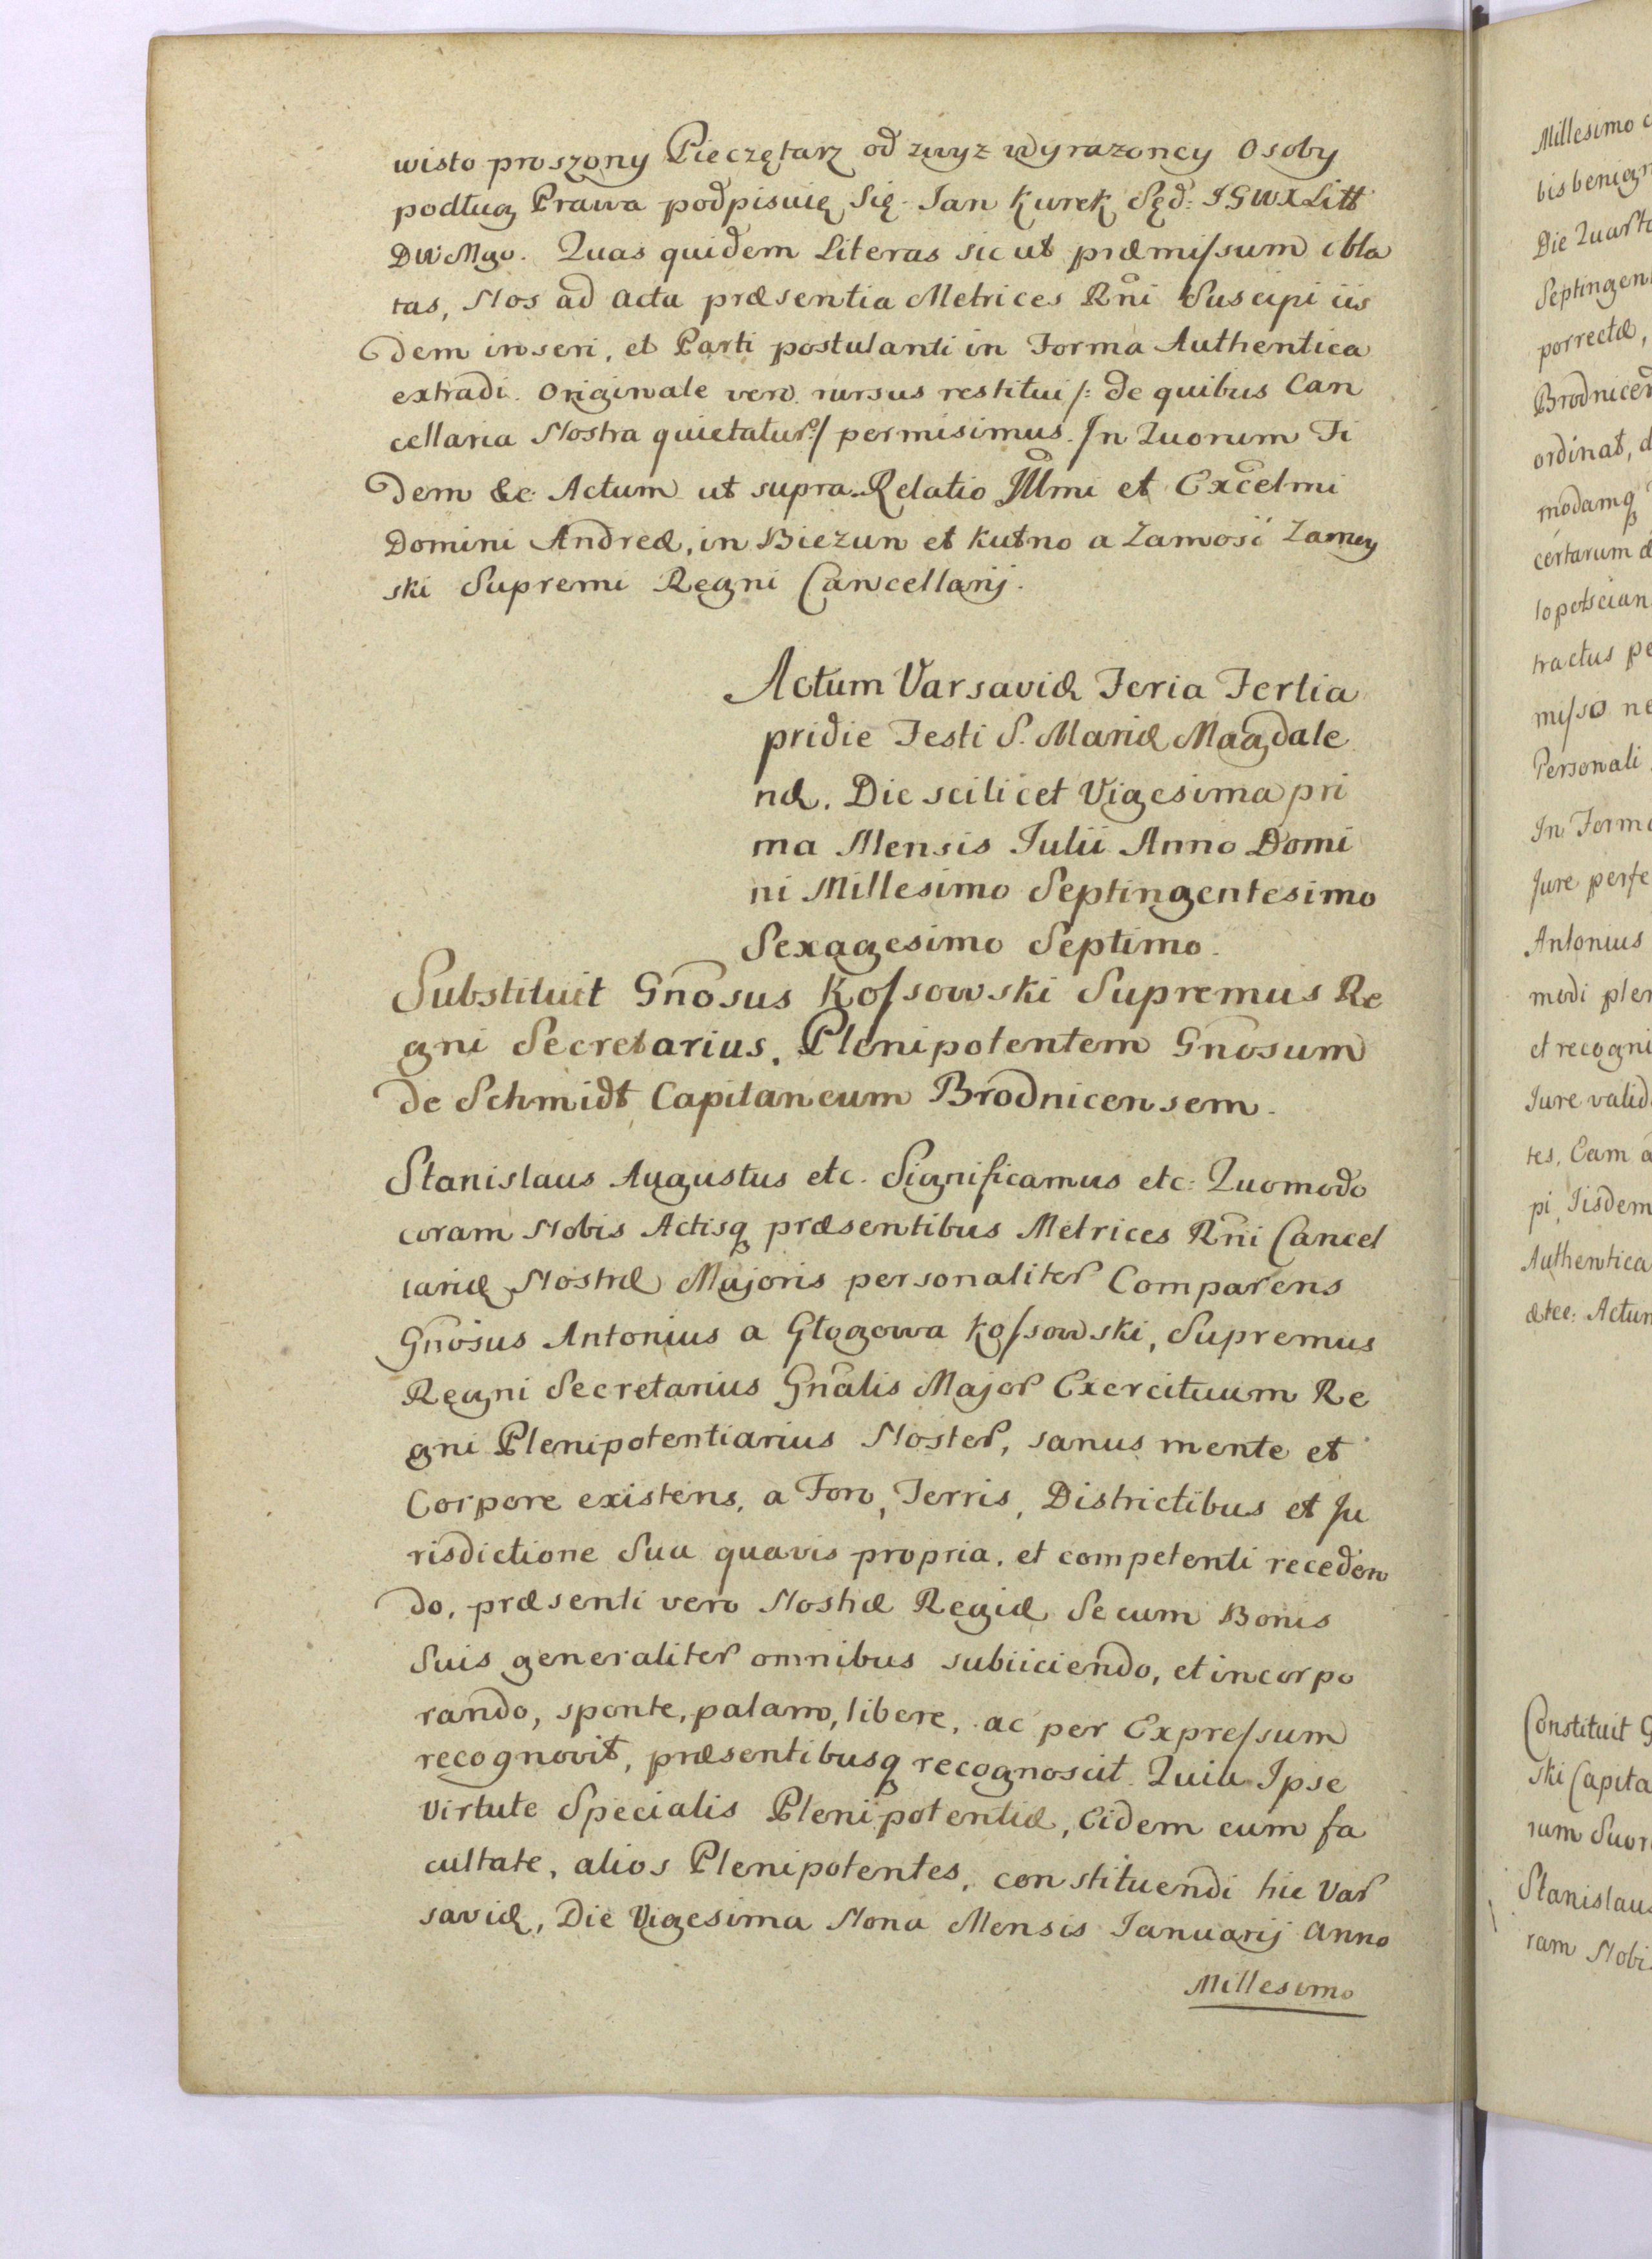 wisto proszony Pieczętarz od zwyz wyrazoney Osoby
podług Prawa podpisuię Się. Jan Kurek Sęd: JGWXLitt
DWMgo. Quas quidem Literas sic ut præmissum obla
tas, Nos ad Acta præsentia Metrices Rñi Suscipi iis
dem inseri, et Parti postulanti in Forma Authentica
extradi. Originale vero rursus restitui /: de quibus Can
cellaria Nostra quietatur :/ permisimus. In Quorum Fi
dem &c: Actum ut supra. Relatio Illmi et Excelmi
Domini Andreæ, in Biezun et Kutno a Zamosć Zamoy
ski Supremi Regni Cancellarij.
Actum Varsaviæ Feria Tertia
pridie Festi S. Mariæ Magdale
næ. Die scilicet Vigesima pri
ma Mensis Julii Anno Domi
ni Millesimo Septingentesimo
Sexagesimo Septimo.
Substituit Gnosus Kossowski Supremus Re
gni Secretarius, Plenipotentem Gnosum
de Schmidt Capitaneum Brodnicensem.
Stanislaus Augustus etc. Significamus etc: Quomodo
coram Nobis Actisq præsentibus Metrices Rñi Cancel
lariæ Nostræ Majoris personaliter Comparens
Gnosus Antonius a Głogowa Kossowski, Supremus
Regni Secretarius Gnalis Major Exercituum Re
gni Plenipotentiarius Noster, sanus mente et
Corpore existens, a Foro, Terris, Districtibus et Ju
risdictione Sua quavis propria, et competenti receden
do, præsenti vero Nostræ Regiæ Se cum Bonis
Suis generaliter omnibus subiiciendo, et incorpo
rando, sponte, palam, libere, ac per Expressum
recognovit, præsentibusq recognoscit. Quia Ipse
Virtute Specialis Plenipotentiæ, Eidem cum fa
cultate, alios Plenipotentes, constituendi hic Var
saviæ, Die Vigesima Nona Mensis Januarij Anno
Millesimo
Millesimo
Die Quarta
porrectæ,
ordinat,
tractus
misso
Personali
In Forma
Jure
Antonius
modi
et
Jure
tes, Eam
pi, Iisdem
Authentica
Constituit
ski
Stanislaus
ram